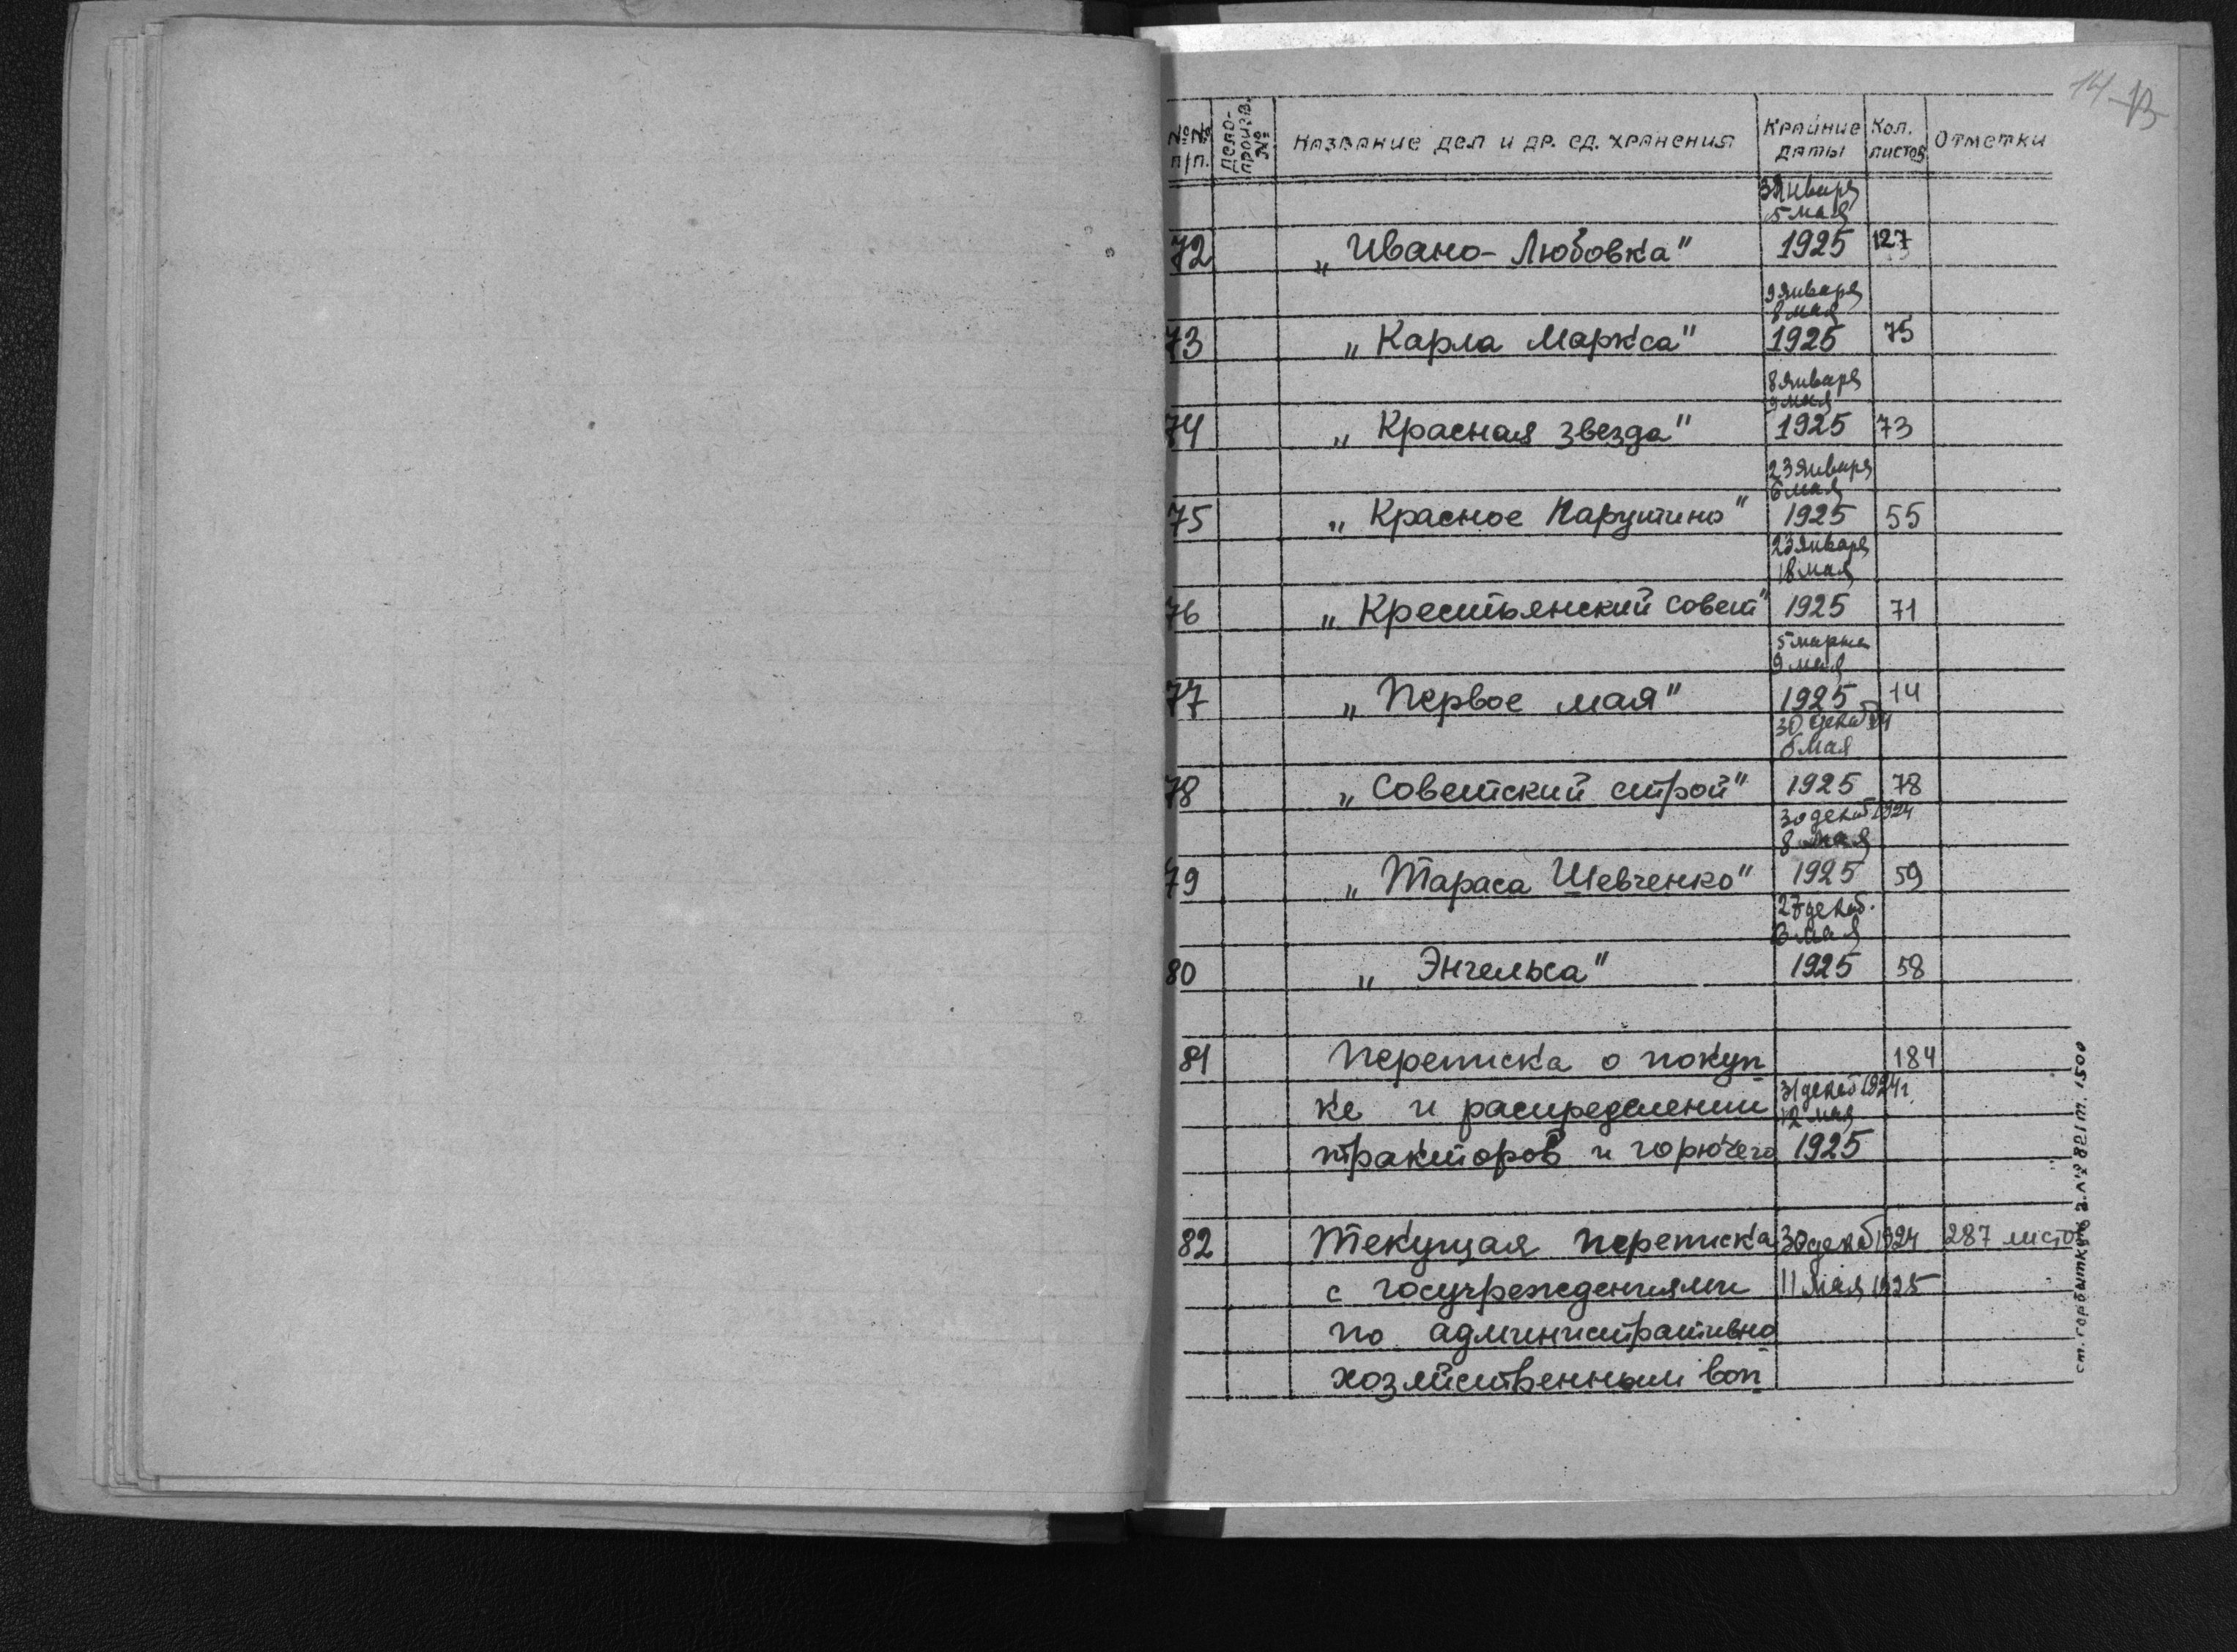 14 13
№№ п/п. Делопроизв. № Название дел и др. ед. хранения Крайние даты Кол. листов Отметки
3 января
5 мая
72 „Ивано-Любовка" 1925 127
9 января
8 мая
73 „Карла Маркса" 1925 75
8 января
9 мая
74 „Красная звезда" 1925 73
23 января
6 мая
75 „Красное Парутино" 1925 55
23 января
18 мая
76 „Крестьянский совет" 1925 71
5 марта
9 мая
77 „Первое мая" 1925 14
30 декаб 24
мая
78 „Советский строй" 1925 78
30 декаб 1924
8 мая
79 „Тараса Шевченко" 1925 59
27 декаб.
мая
80 „Энгельса" 1925 58
81 Переписка о покуп 184
ке и распределении 31 декаб 1924 г.
12 мая
тракторов и горючего 1925
82 Текущая переписка 30 декаб 1924 287 листов
с госучреждениями 11 мая 1925
по административно
хозяйственным воп
ст. горбыткомб З. № 8821 т. 1500